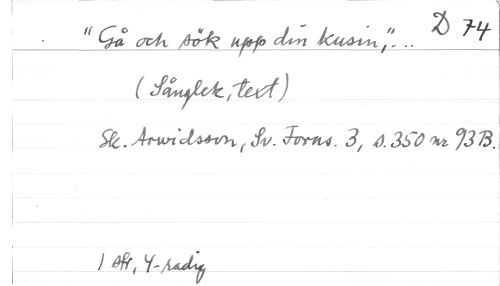 "Gå och sök upp din kusin,"... D 74
(Sånglek, text)
Sk. Arwidsson, Sv. Forns. 3, s. 350 nr 93B.
1 str, 4-radig